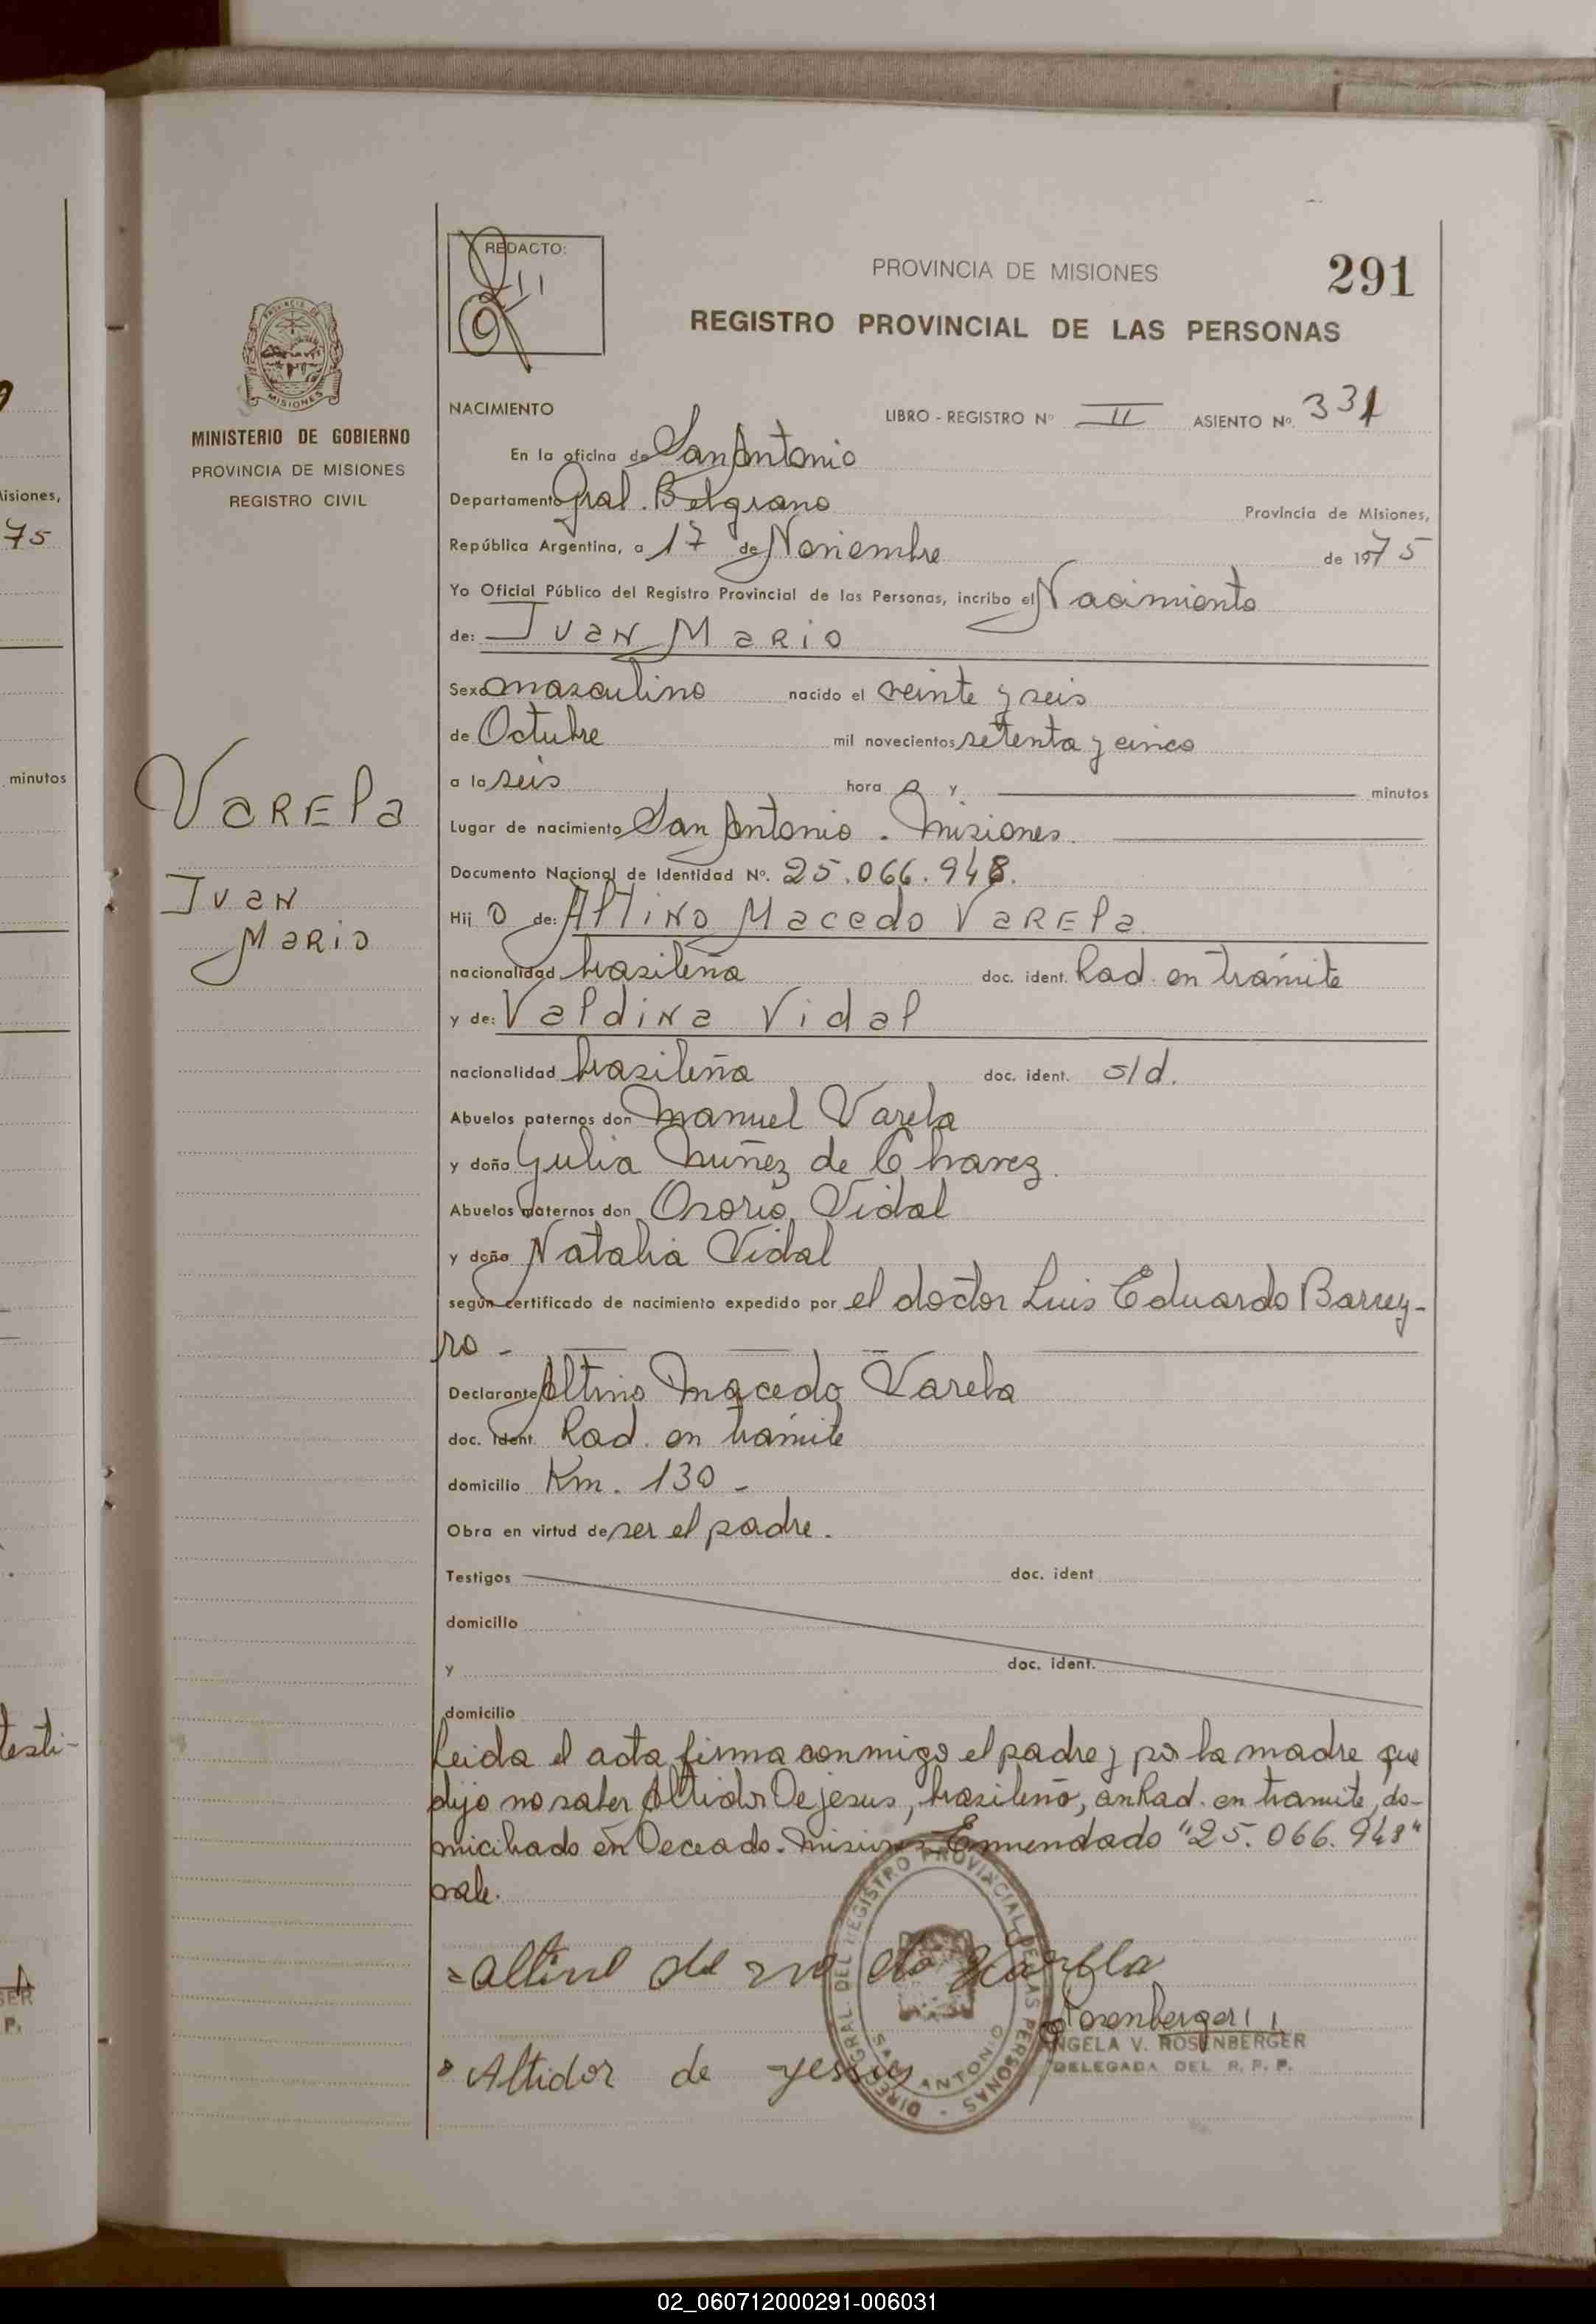 REDACTO:
PROVINCIA DE MISIONES
291
REGISTRO PROVINCIAL DE LAS PERSONAS
MISIONES
MINISTERIO DE GOBIERNO
PROVINCIA DE MISIONES
REGISTRO CIVIL
NACIMIENTO LIBRO - REGISTRO Nº II ASIENTO Nº. 331
En la oficina de San Antonio
Departamento Gral. Belgrano Provincia de Misiones,
República Argentina, a 17 de Noviembre de 1975
Yo Oficial Público del Registro Provincial de las Personas, incribo el Nacimiento
de: Juan Mario
Sexo masculino nacido el veinte y seis
de Octubre mil novecientos setenta y cinco
a la seis hora s y minutos
Varela
Juan
Mario
Lugar de nacimiento San Antonio. Misiones.
Documento Nacional de Identidad Nº. 25.066.948.
Hij o de: Altino Macedo Varela
nacionalidad brasileña doc. ident. Rad. en trámite
y de: Valdina Vidal
nacionalidad brasileña doc. ident. s/d.
Abuelos paternos don Manuel Varela
y doña Julia Nuñez de Chavez.
Abuelos maternos don Osorio Vidal
y doña Natalia Vidal
según certificado de nacimiento expedido por el doctor Luis Eduardo Barrey-
ro -
Declarante Altino Macedo Varela
doc. ident. Rad. en trámite
domicilio Km. 130 -
Obra en virtud de ser el padre.
Testigos doc. ident
domicilio
y doc. ident.
domicilio
Leida el acta firma conmigo el padre y por la madre que
dijo no saber Altidor De jesus, brasileño, Rad. en tramite, do-
miciliado en Deceado. Misiones Enmendado "25.066.948"
vale.
Varela
Rosenberger
ANGELA V. ROSENBERGER
DELEGADA DEL R. P. P.
Altidor de yesus
DIREC. GRAL. DEL REGISTRO PROVINCIAL DE LAS PERSONAS -
SAN ANTONIO
isiones,
75
minutos
testi-
SER
P.
02_060712000291-006031